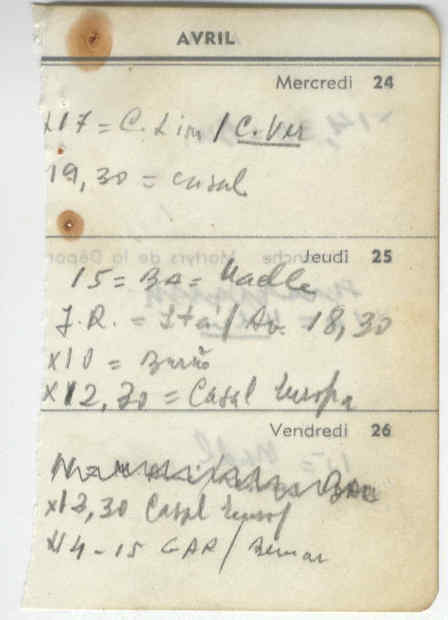 AVRIL
Mercredi 24
x17 = C. Lim / C. Ver
19,30 = casal
Jeudi 25
15 = BA = Madle
J.R. = Sta / Av. 18,30
x10 =
x12,30 = Casal Europa
Vendredi 26
x13,30 Casal Europ
x14-15 GAR /